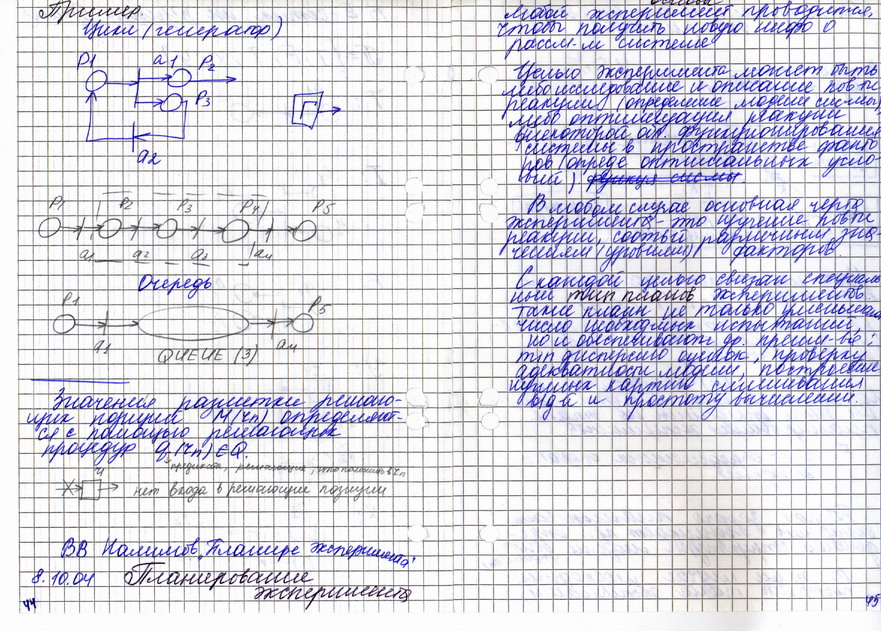 Пример.
Цикл (генератор)
P1 a1 P2
P3
Г
a2
P1 P2 P3 P4 P5
a1 a2 a3 a4
Очередь
P1 P5
a1 QUEUE (3) a4
Значения разметки решаю-
щих позиций M(rn) определяют-
ся с помощью решающих
процедур q(rn)∈Q.
нет входа в решающие позиции
ВВ Налимов „Планир-е эксперимента"
8.10.04 Планирование
эксперимента
44
Любой эксперимент проводится,
чтобы получить новую инфо о
рассм-м системе
Целью эксперимента может быть
либо исследование и описание пов-ти
реакции (определение модели сис-мы)
либо оптимизация реакции
в некоторой обл. функционирования
системы в пространстве факто-
ров (опреде оптимальных усло-
вий)
В любом случае основная черта
эксперимента - это изучение пов-ти
реакции, соотв-й различным зна-
чениям (уровням) факторов.
С каждой целью связан специаль-
ный тип планов эксперимента
такие планы не только уменьшают
число необходимых испытаний,
но и обеспечивают др. преим-ва:
дисперсию оценок, проверки
адекватности модели, построение
нужных картин смешивания
и простоту вычислений.
45